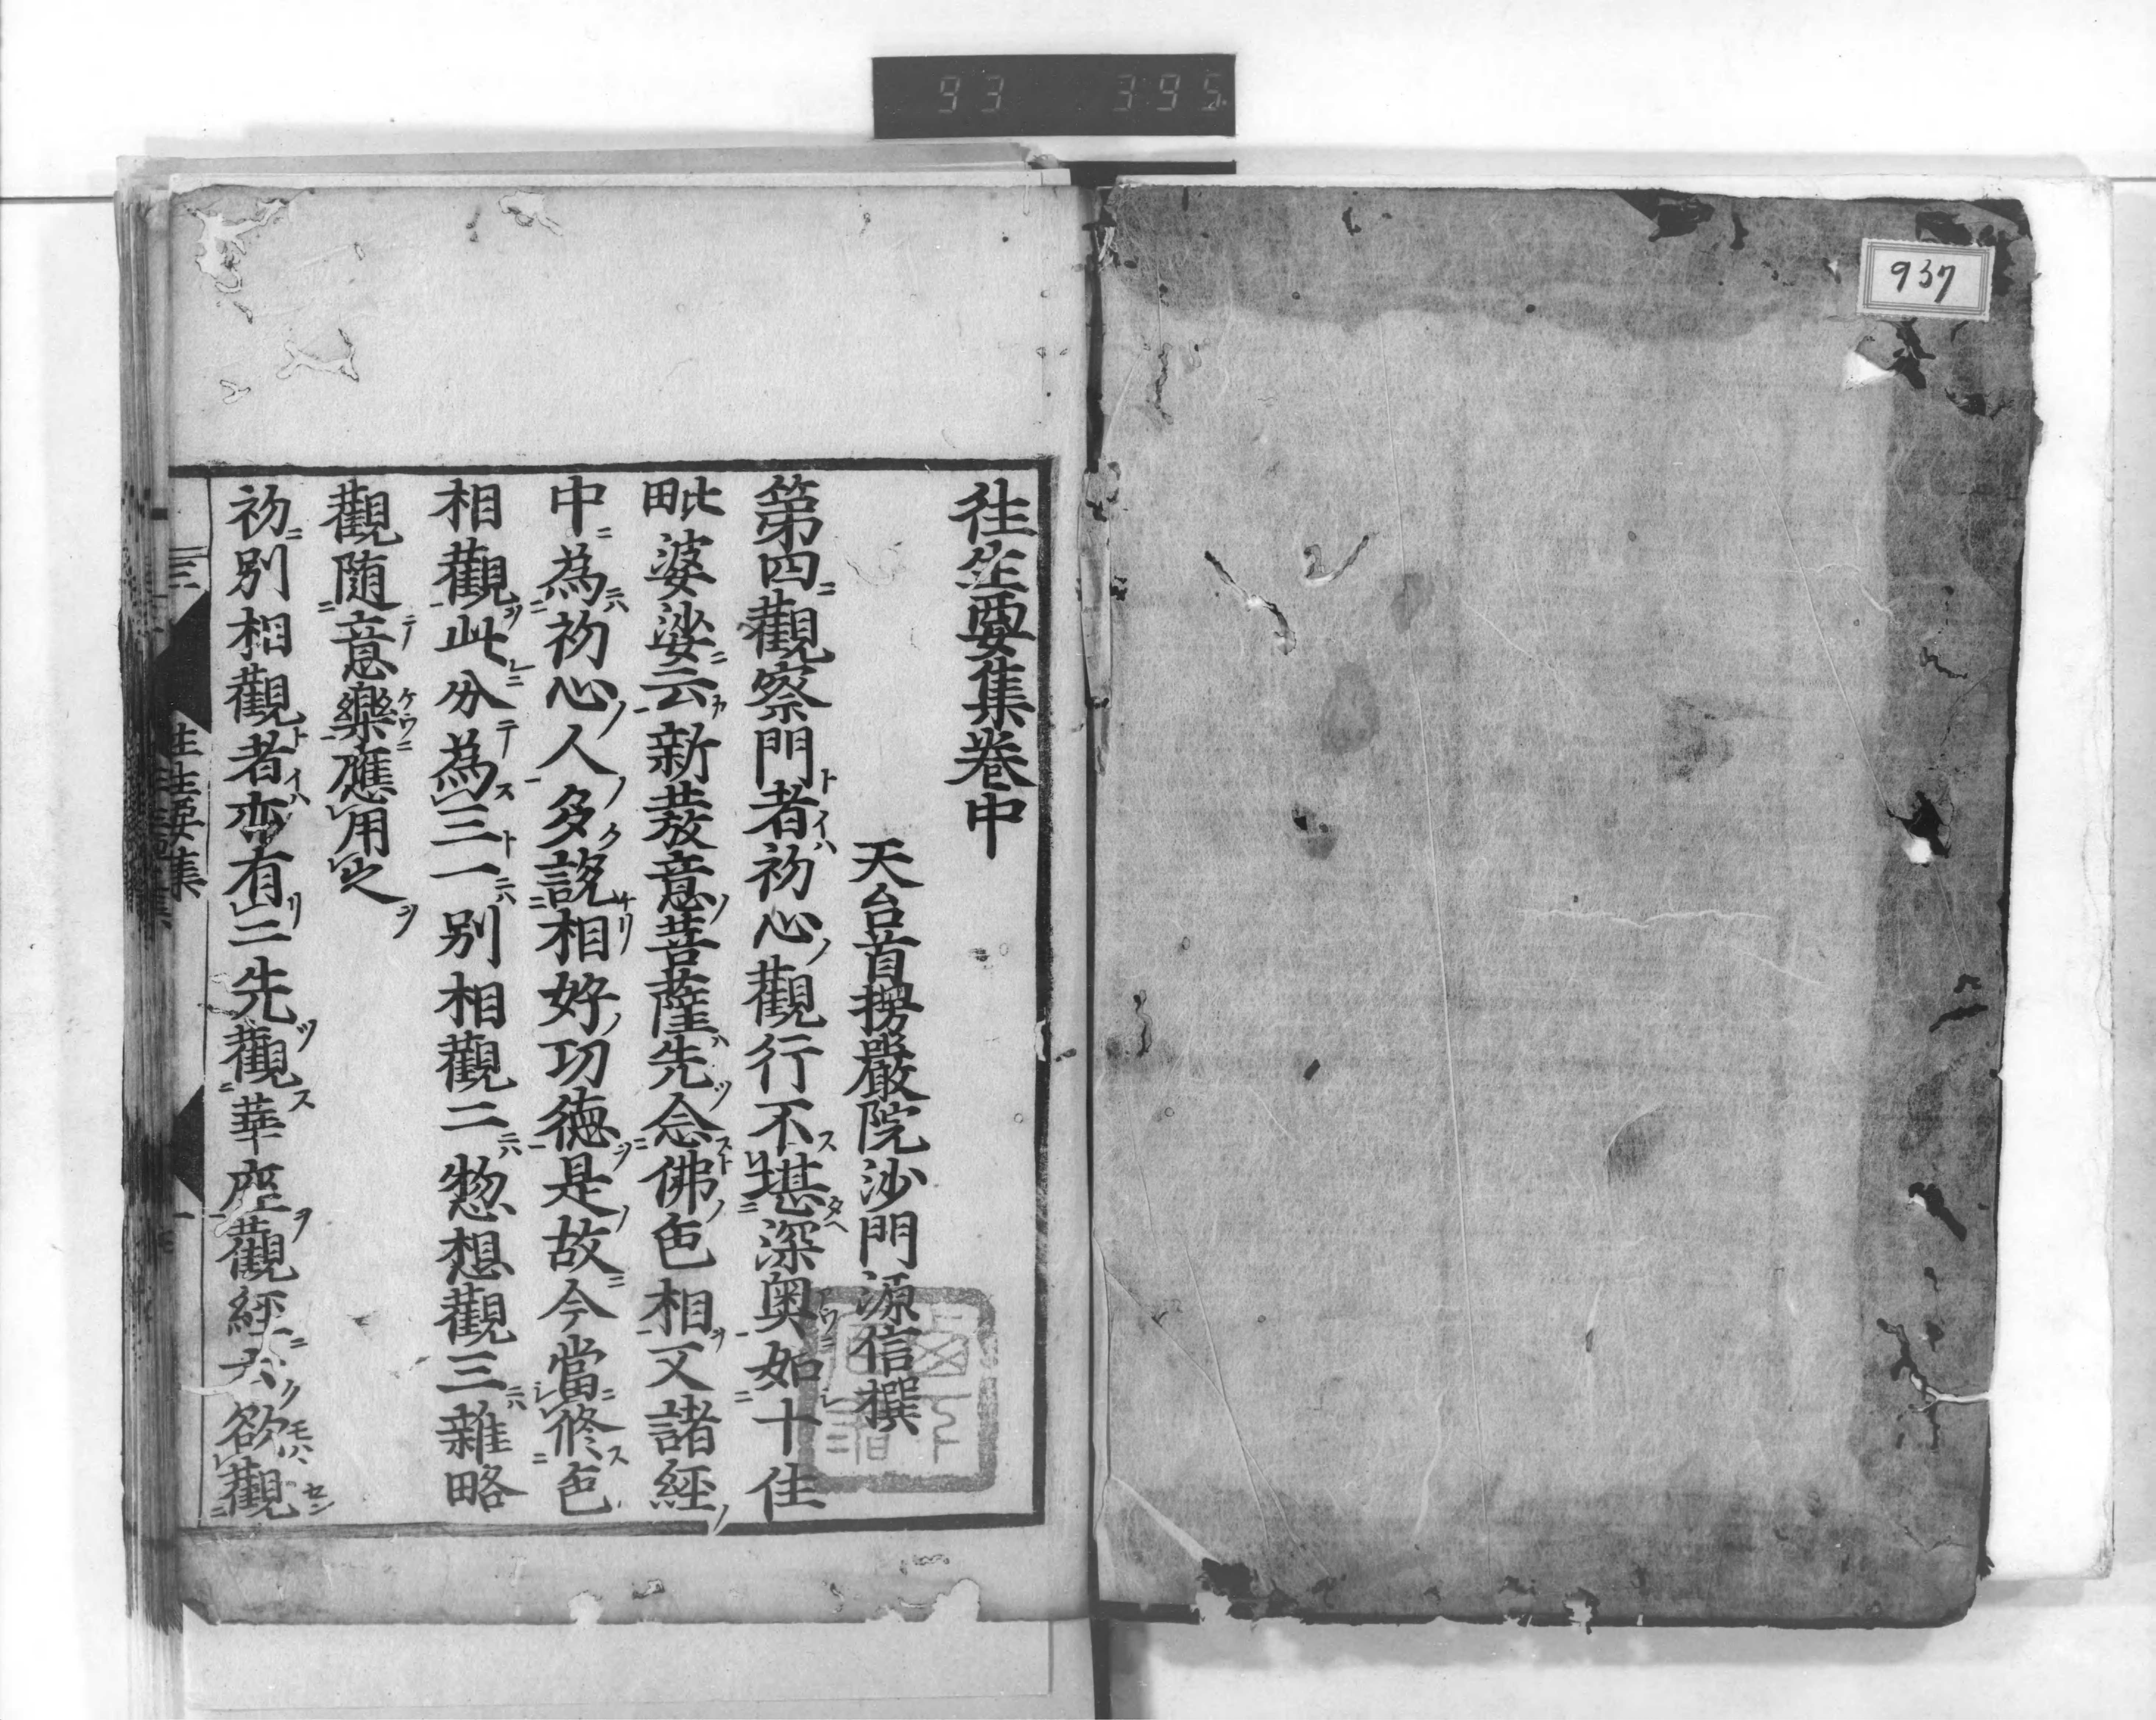 93 395
937
徃生要集卷中
天台首楞嚴院沙門源信撰
第四觀察門者初心觀行不堪深奧如十住
毗婆娑云新發意菩薩先念佛色相又諸經
中為初心人多說相好功德是故今當修色
相觀此分為三一別相觀二惣想觀三雜略
觀随意樂應用之
初別相觀者亦有二先觀華座觀經云欲觀
徃生要集